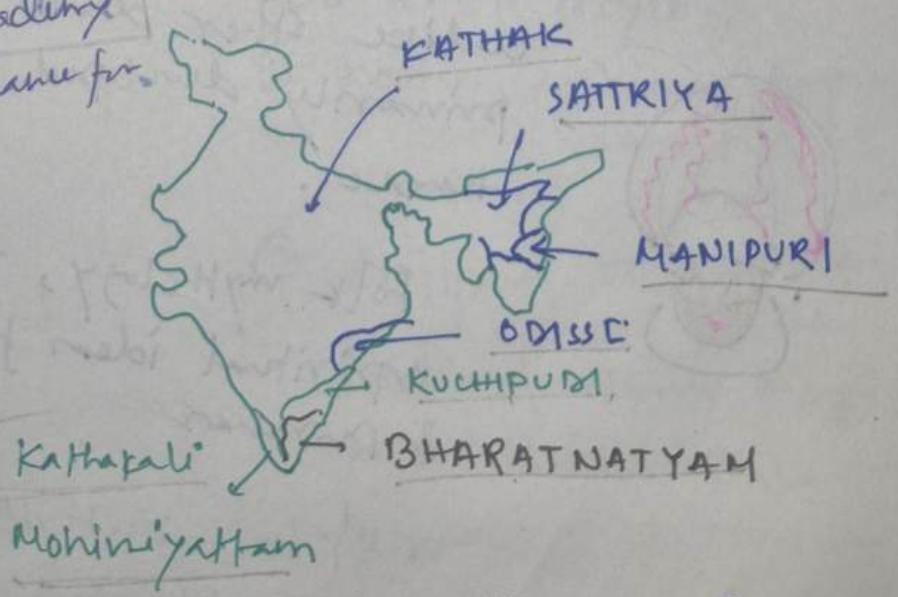 ance for.
KATHAK
SATTRIYA
MANIPURI
ODISSI
KUCHIPUDI,
BHARATNATYAM
Kathakali
Mohiniyattam